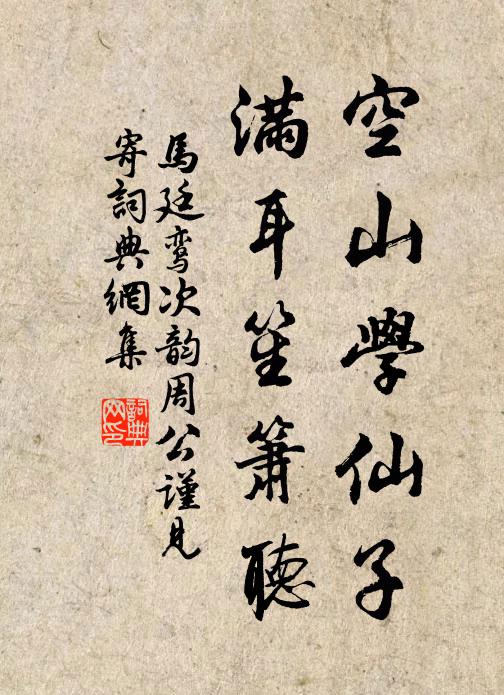 空山學仙子
滿耳笙簫聽
馬廷鸾次韵周公謹見
寄詞典網集
詞典
网印